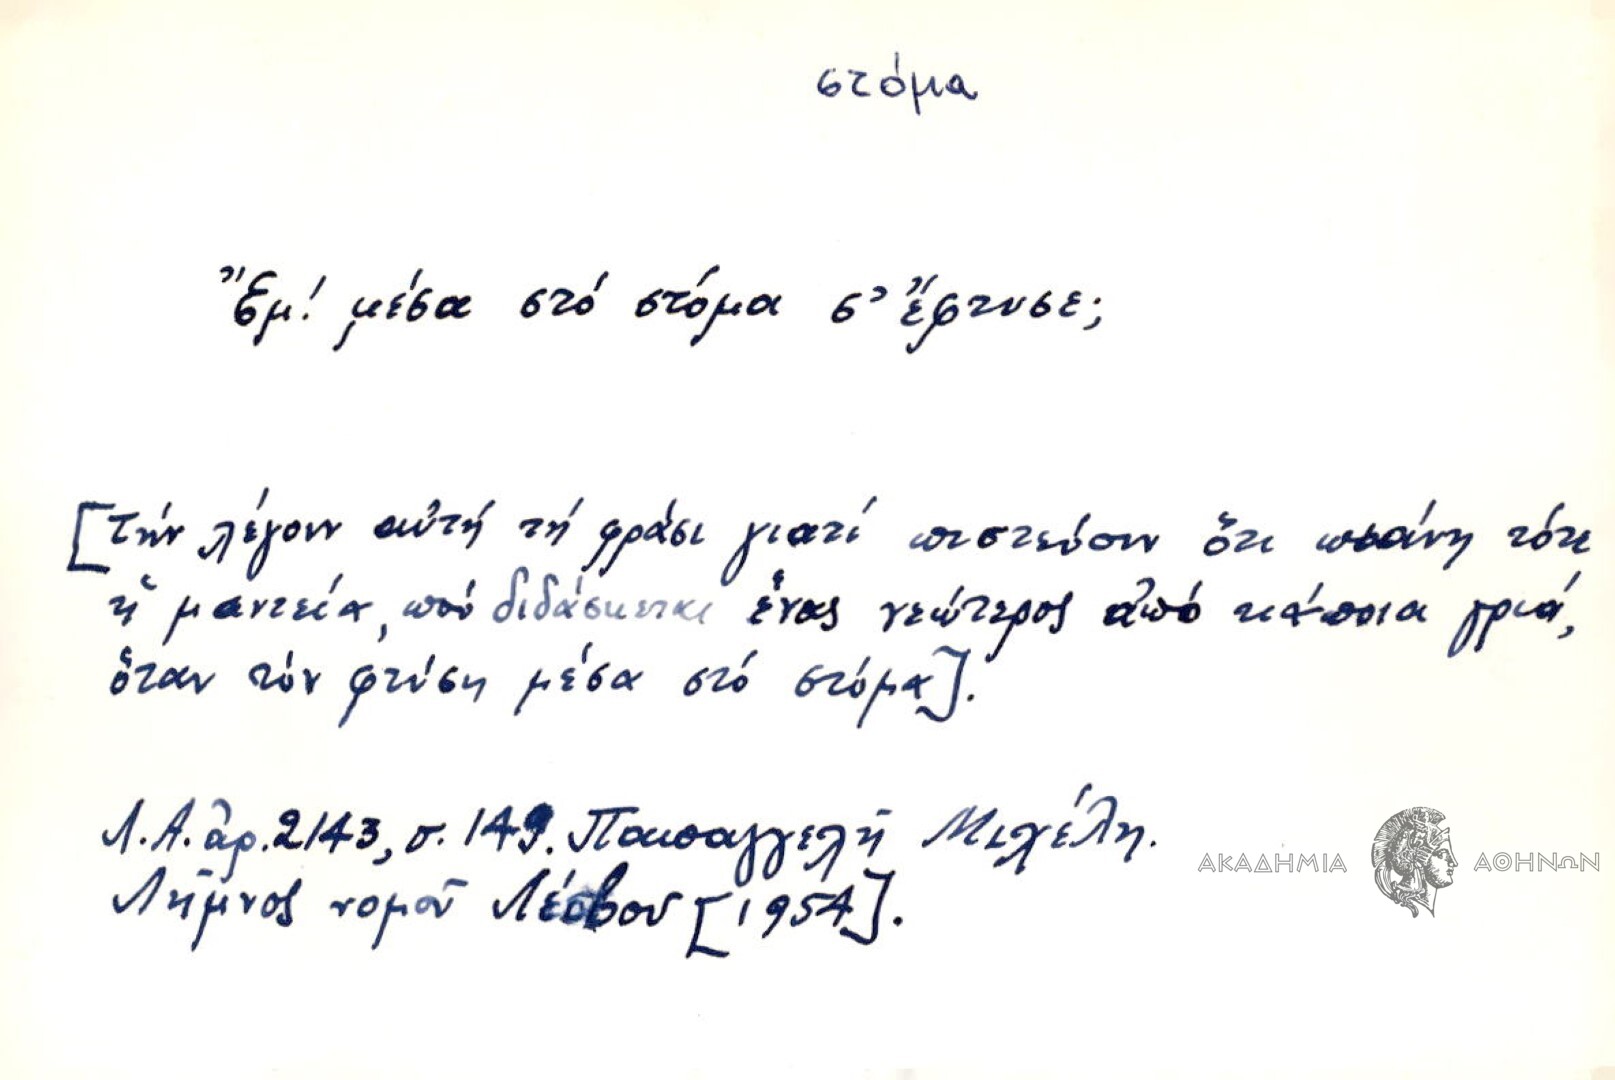 στόμα
Ἔμ! μέσα στό στόμα σ' ἔφτυσε;
[Τήν λέγουν αὐτή τή φράσι γιατί πιστεύουν ὅτι πιάνη τότε
ἡ μαντεία, πού διδάσκεται ἕνας νεώτερος ἀπό κάποια γριά,
ὅταν τόν φτύση μέσα στό στόμα].
Λ.Α. ἀρ. 2143, σ. 149. Παπαγγελῆ Μιχέλη.
Λῆμνος νομοῦ Λέσβου [1954].
ΑΚΑΔΗΜΙΑ ΑΘΗΝΩΝ